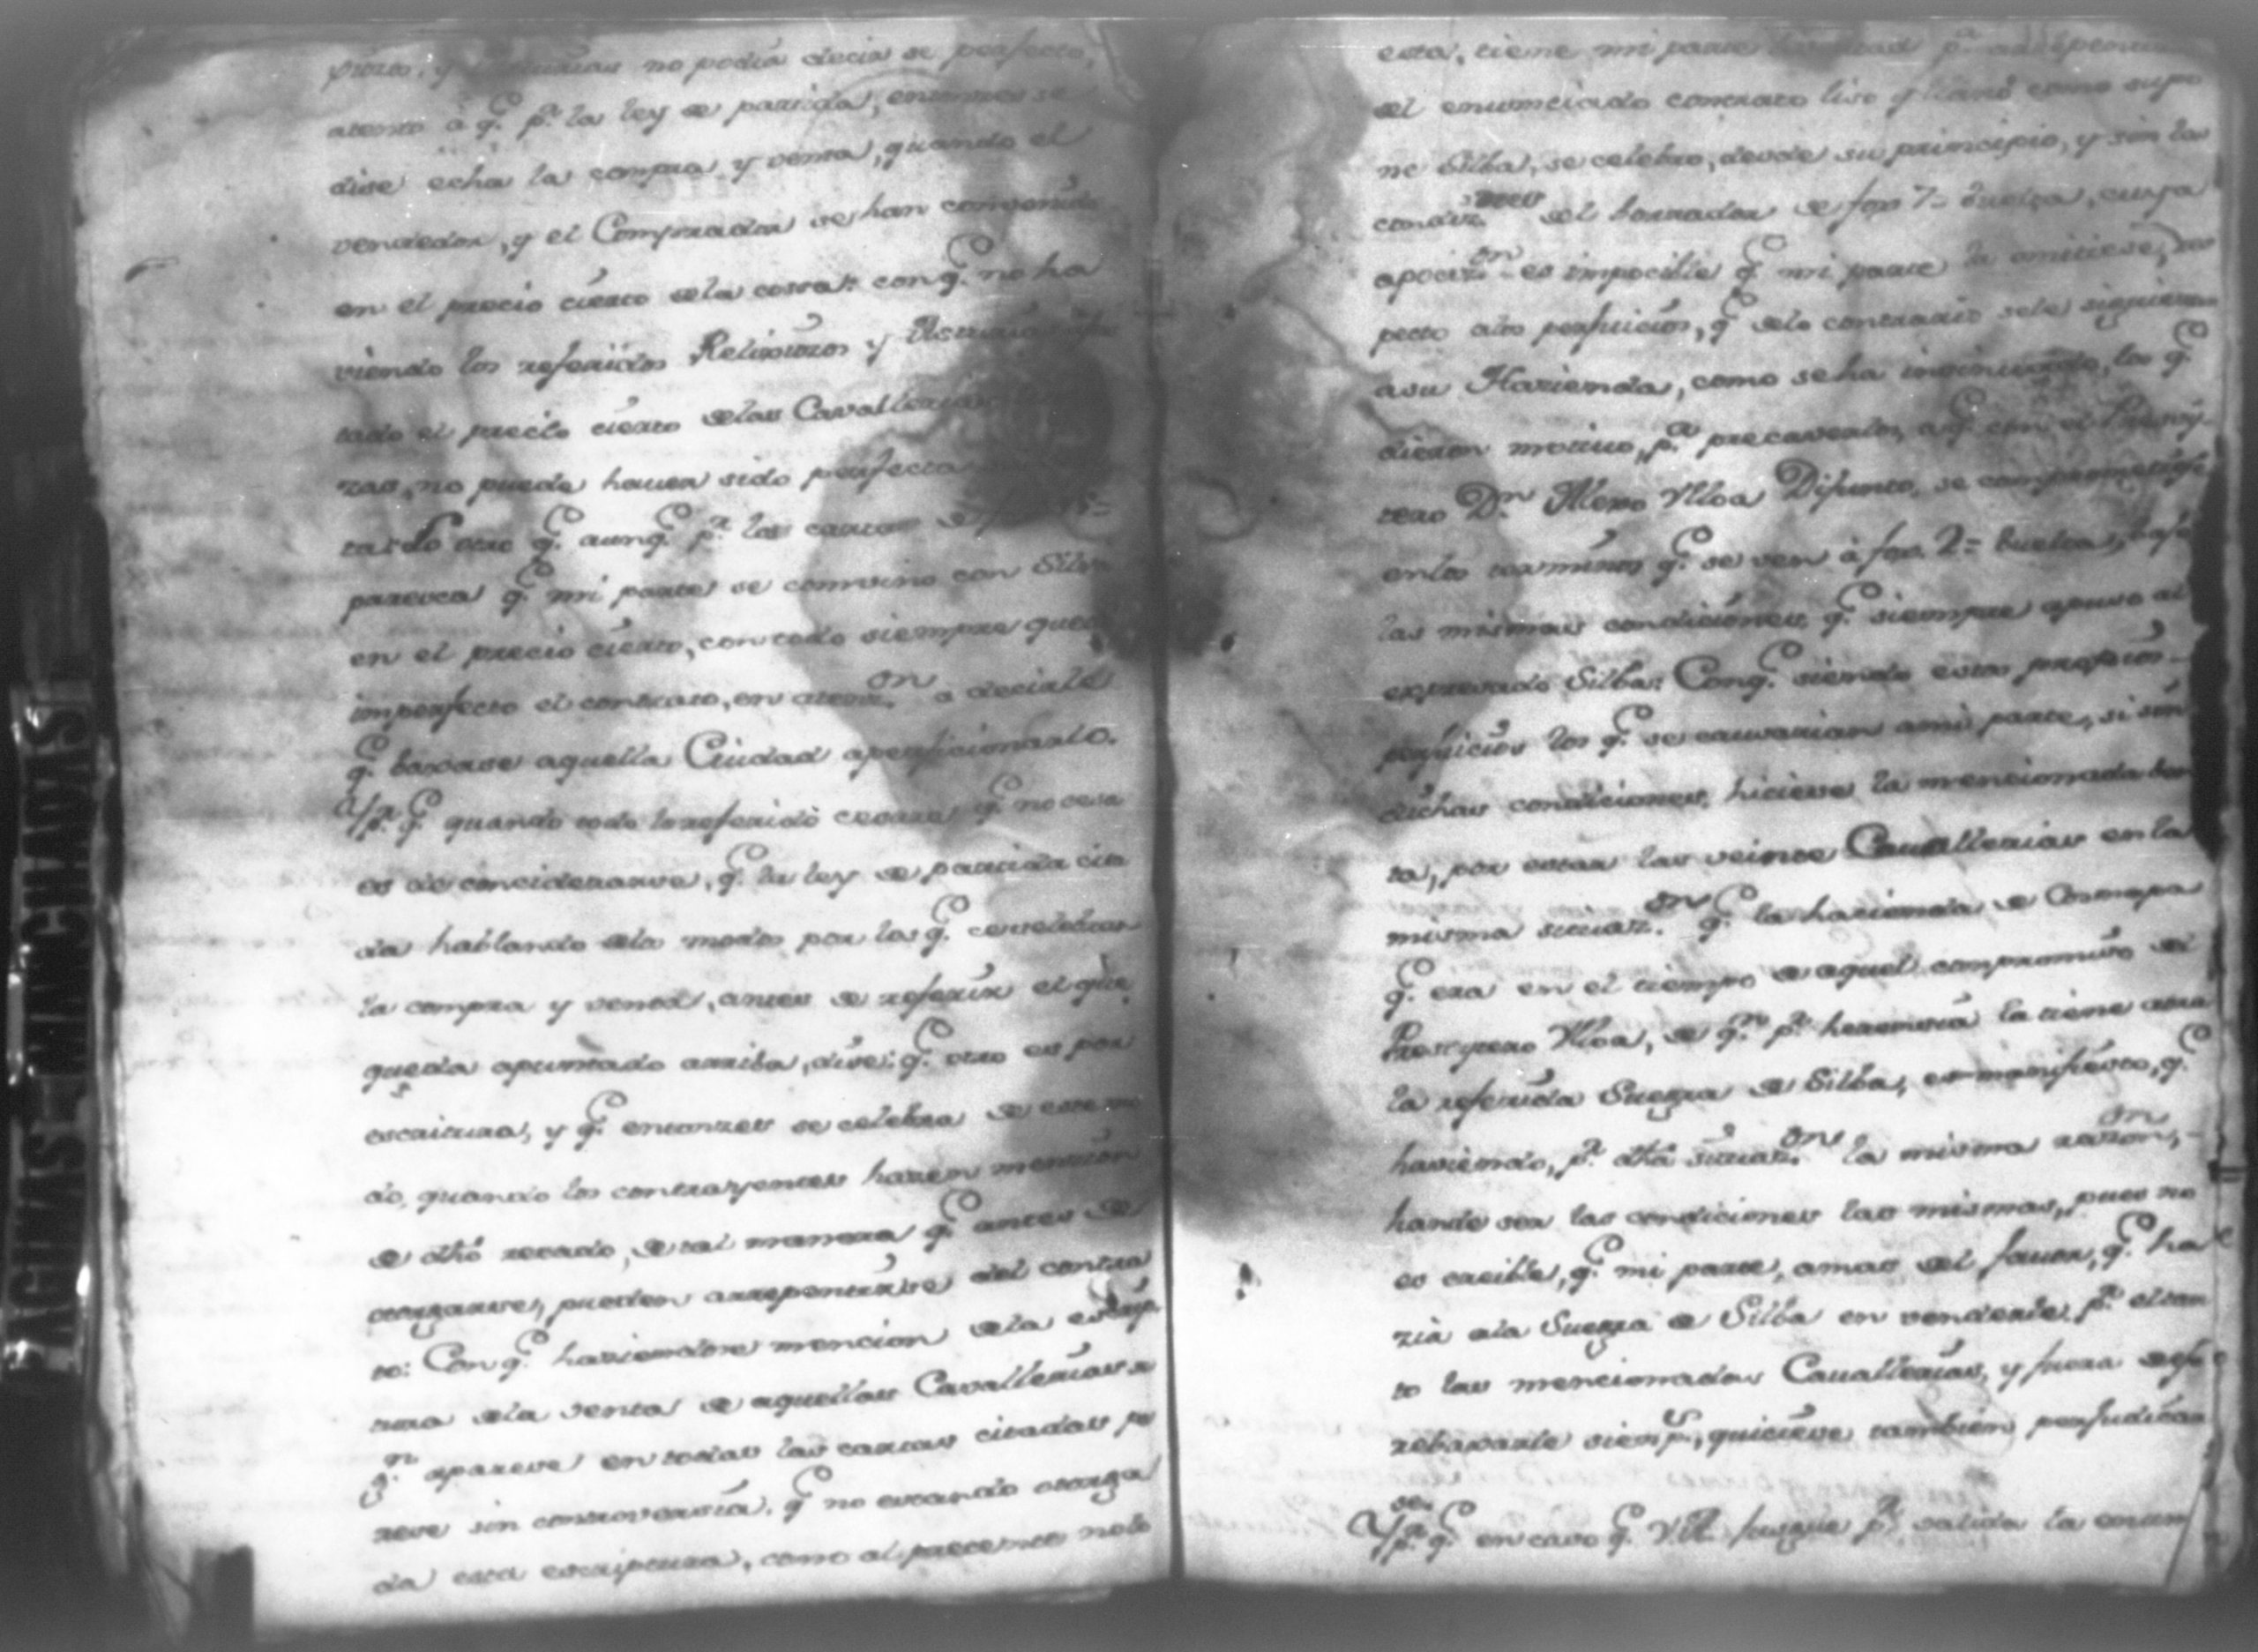 y no podia decir se perfecto,
atento â q.e p.r la ley de partida, entonses se
dise echa la compra y venta, quando el
vendedor, y el Comprador se han convenido
en el precio cierto dela cossa: con q.e no ha
viendo los referidos Relixiosos y
tado el precio cierto delas Cavallerias
ras, no puede haver sido perfecta
otro q.e aunq.e p.r las cartas de
paresca q.e mi parte se convino con Silba
en el precio cierto, con todo siempre quedo
imperfecto el contrato, en atenz.on a decirle
q.e baxase aquella Ciudad aperficionarlo.
Y p.r q.e quando todo lo referido cesara q.e no cesa
es de conciderarse, q.e la ley de partida cita
da hablando dela modos por los q.e se celebran
la compra y venta, antes de referir el que
queda apuntado arriba, dise: q.e otro es por
escritura, y q.e entonzes se celebra de este mo
do, quando los contrayentes hazen mención
de dhô recado, de tal manera q.e antes de
otorgarse, pueden arrepentirse del contra
to: Con q.e haviendose mencion dela escrip
tura dela venta de aquellas Cavallerias
q.n aparese en todas las cartas citadas pa
rese sin controversia, q.e no estando otorga
da esta escriptura, como al precente no lo
esta, tiene mi parte p.a arrepentirse
del enunciado contrato liso y llano como supo
ne Silba, se celebro, desde su principio, y sin las
condiz.nes del borrador de fox 7= buelta, cuya
apociz.on es impocible q.e mi parte la omitiese, res
pecto alos perjuicios, q.e delo contrario sele siguieran
asu Hazienda, como seha insinuado, los q.e
dieron motivo, p.a precaverlos, a q.e con el Presvi-
tero D.n Alexo Ulloa Difunto, se comprometiese
enlos terminos q.e se ven â fox. 2= buelta, bajo
las mismas condiciones, q.e siempre apuso al
expresado Silba: Conq.e siendo estos
perjuicios los q.e se causarian ami parte, si sin
dichas condiciones, hiciese la mencionada ben
ta, por estar las veinte Cavallerias en la
misma situaz.on q.e la hacienda de
q.e era en el tiempo de aquel compromiso del
Presvytero Ulloa, de q.n p.r herencia la tiene aora
la referida Suegra de Silba, es manifiesto, q.e
haviendo, p.r dhâ situaz.on la misma razon,
hande ser las condiciones las mismas, pues no
es creible, q.e mi parte, amas del favor, q.e ha
zia ala Suegra de Silba en venderle, p.r el tan
to las mencionadas Cavallerias, y fuera de
rebaxarle siem p.s, quiciese tambien perjudicar
se.
Y p.r q.e en caso q.e V.A. jusgue p.r valida la enun